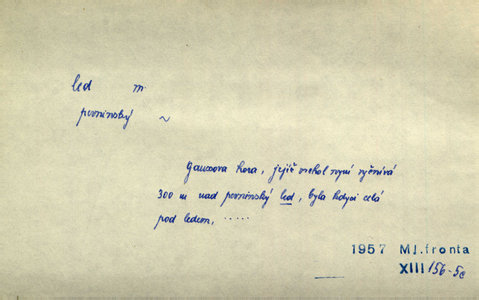 led m.
pevninský ~
Gaussova hora, jejíž vrchol nyní vyčnívá
300 m nad pevninský led, byla kdysi celá
pod ledem, .....
1957 Ml.fronta
XIII/156-5c